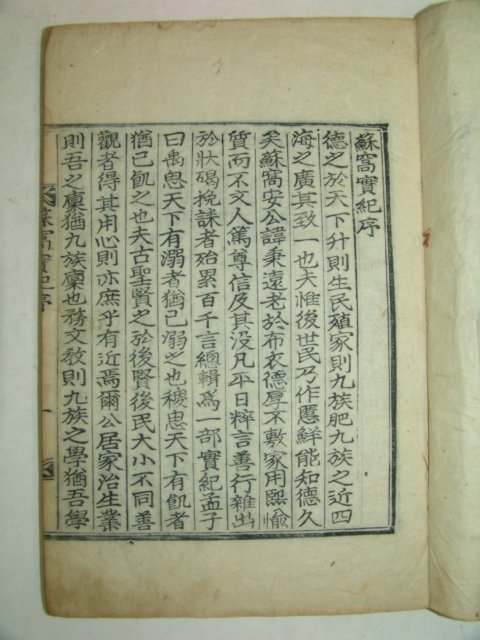 蘇窩實紀序
德之於天下升則生民殖家則九族肥九族之近四
海之廣其致一也夫惟後世民乃作慝鮮能知德久
矣蘇窩安公諱秉遠老於布衣德厚不敷家用熙愉
質而不文人篤尊信及其没凡平日粹言善行雜出
於狀碣挽誄者殆累百千言緫輯爲一部實紀孟子
曰禹思天下有溺者猶己溺之也稷思天下有飢者
猶己飢之也夫古聖賢之於後賢後民大小不同善
觀者得其用心則亦庶乎有近焉爾公居家治生業
則吾之廩猶九族廩也務文敎則九族之學猶吾學
蘇窩實紀序
一